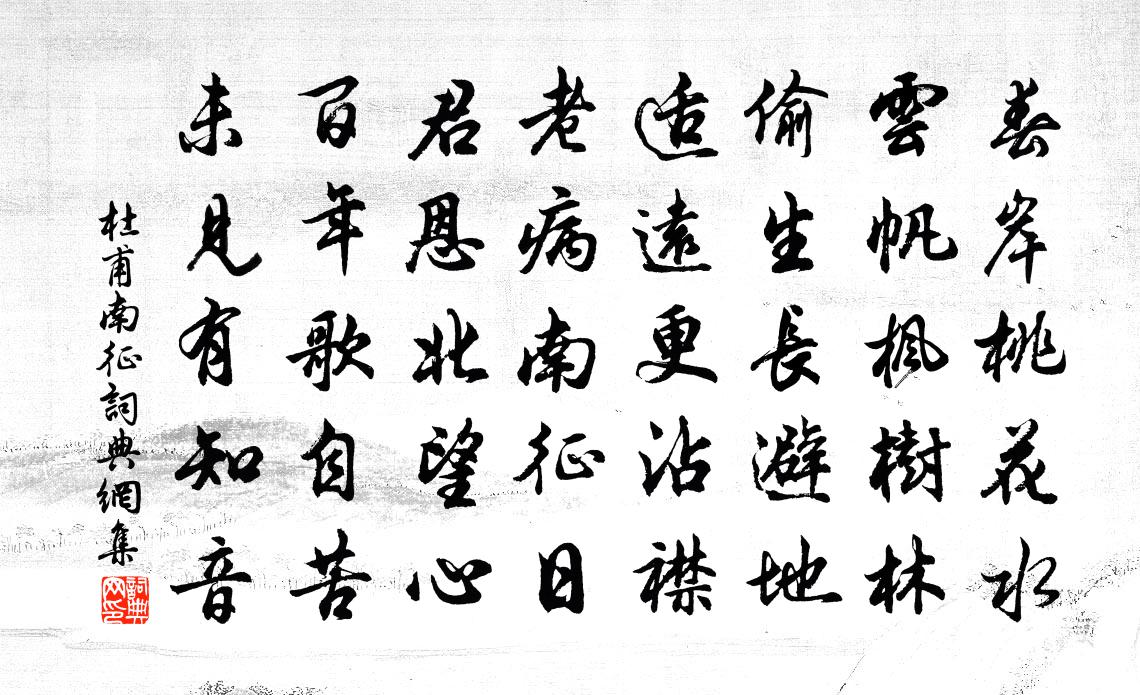 春岸桃花水
雲帆楓樹林
偷生長避地
适遠更沾襟
老病南征日
君恩北望心
百年歌自苦
未見有知音
杜甫南征詞典網集
詞典网印